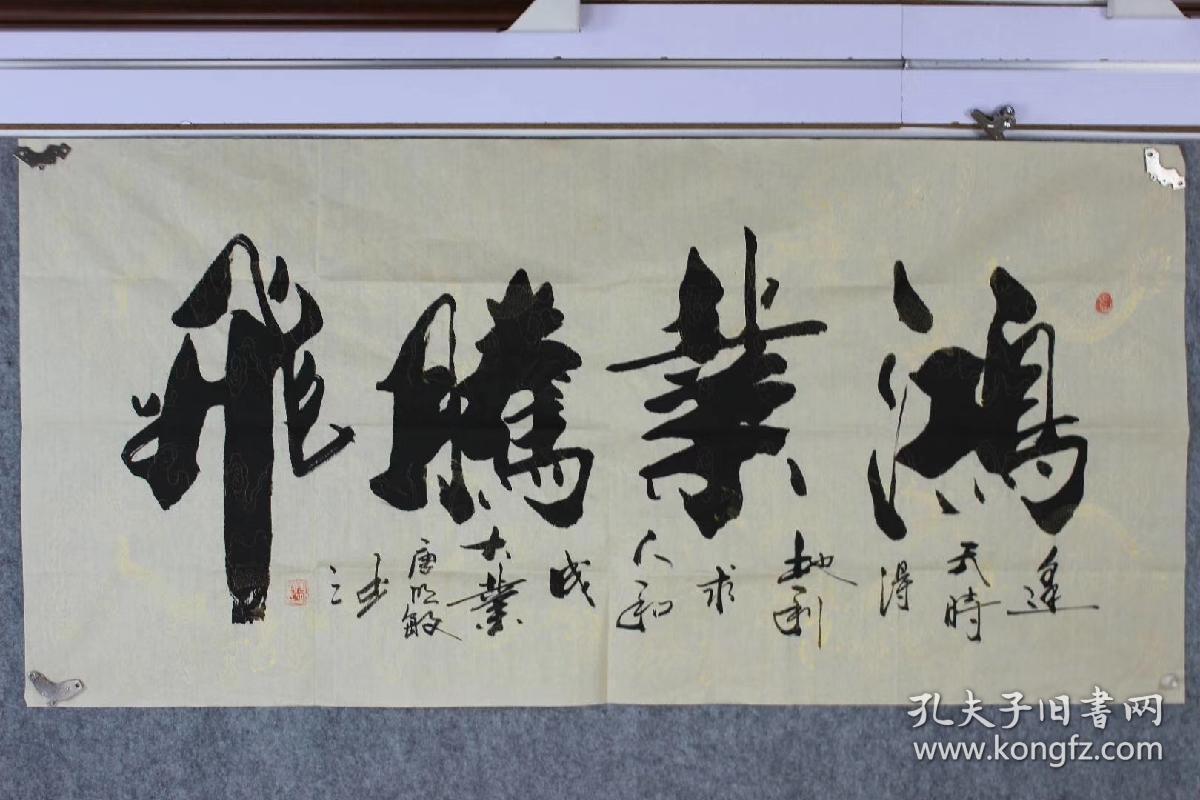 鴻業騰飛
逢
天時
得
地利
求
人和
成
大業
唐明敏
书
之
孔夫子旧書网
www.kongfz.com